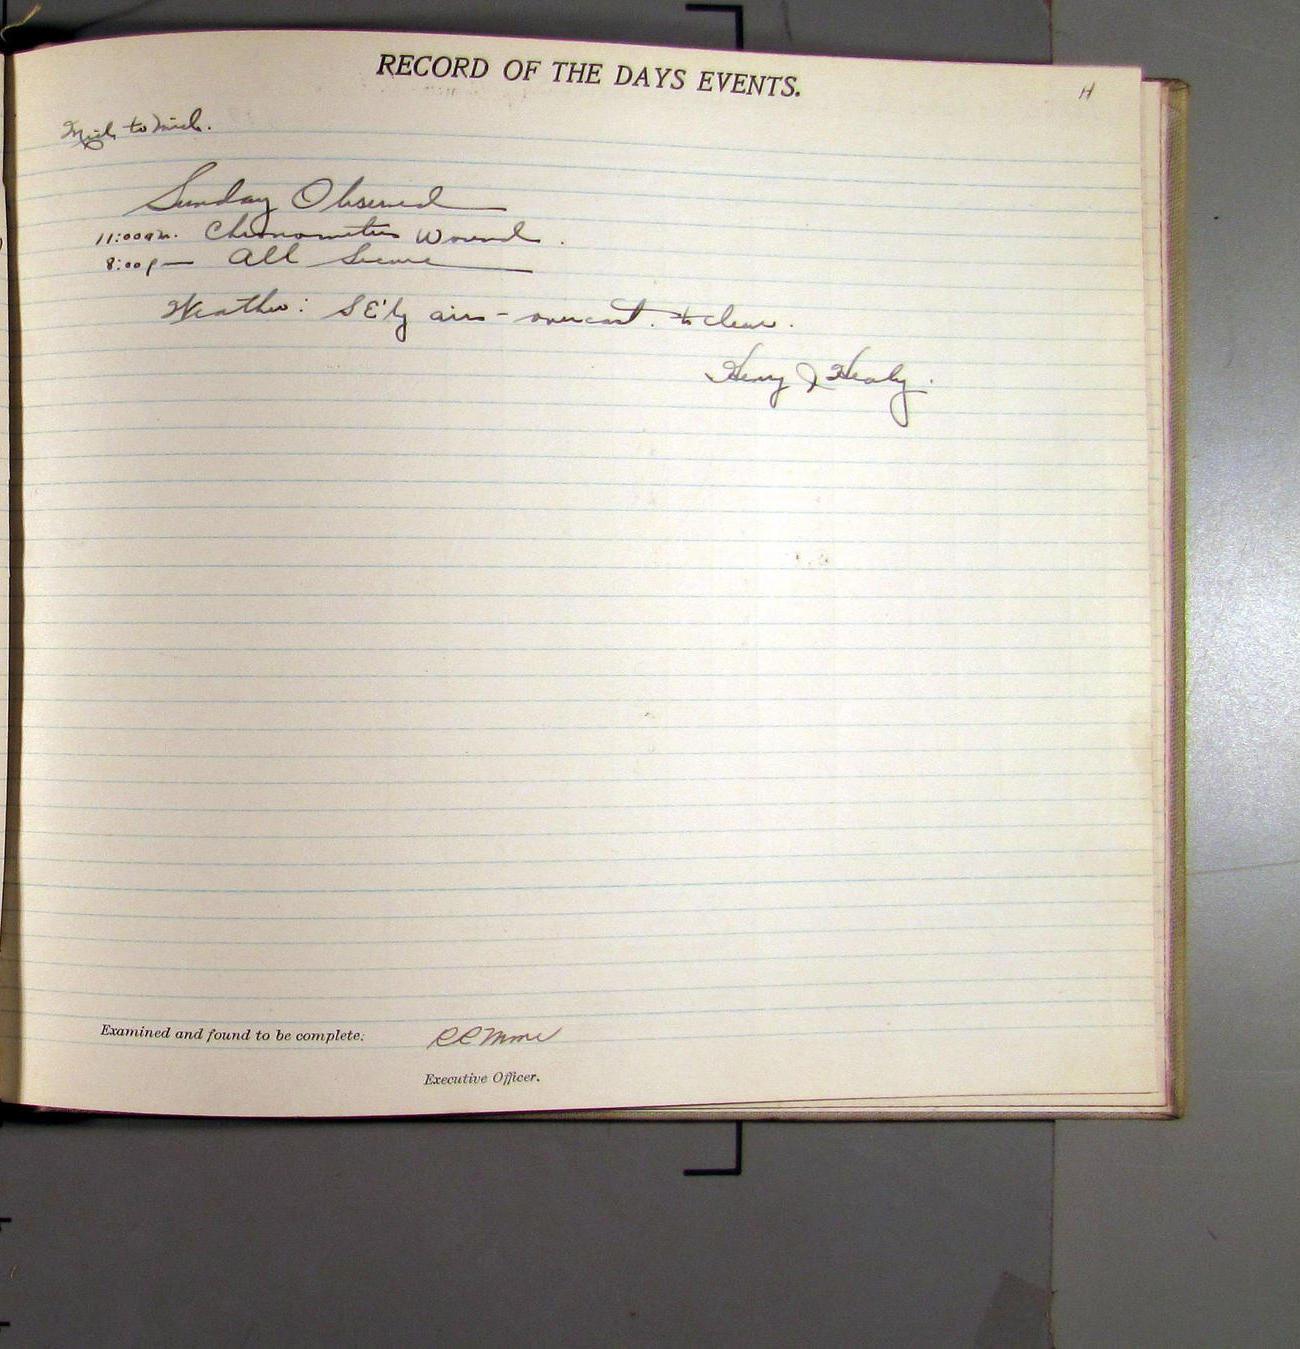 RECORD OF THE DAYS EVENTS.
H
Mid. to mid.
Sunday Observed
11:00am. Chronometers Wound.
8:00p— All Secure
Weather: SE'ly airs - overcast. to clear.
Henry J Healy.
Examined and found to be complete:
Executive Officer.